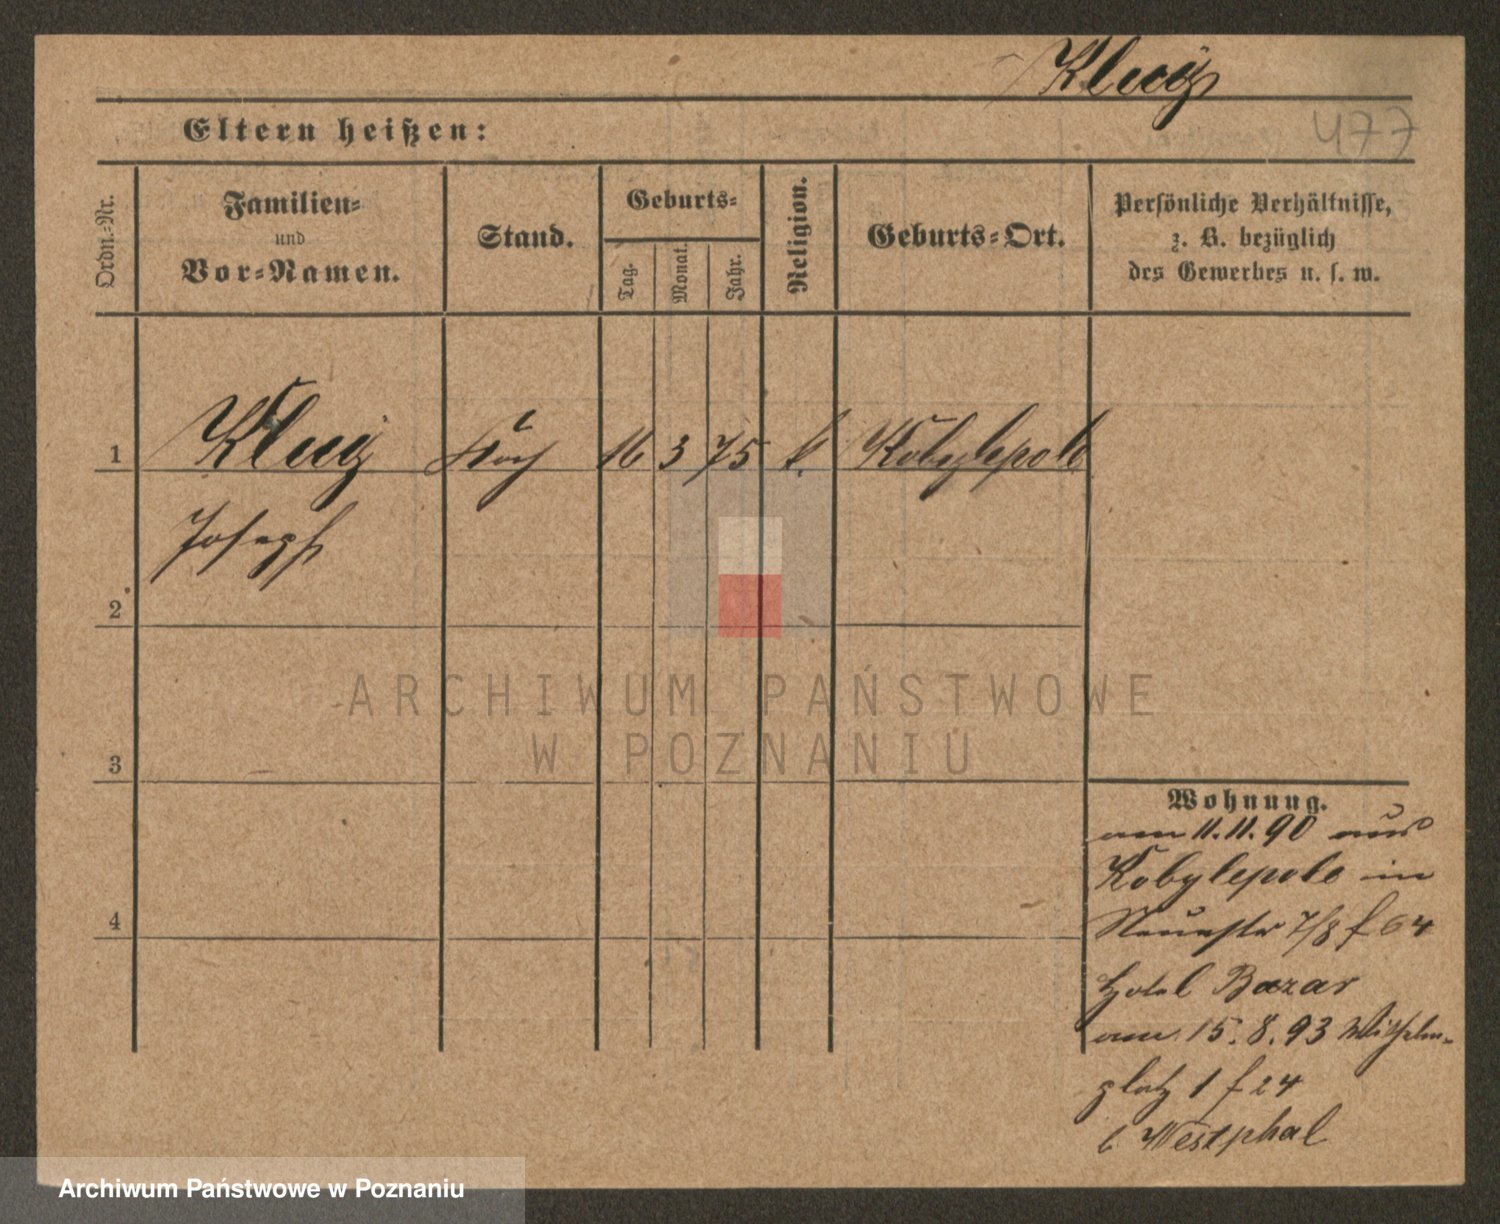 Kluij
477
Eltern heißen:
Ordn.-Nr.
Familien-
und
Vor-Namen.
Stand.
Geburts-
Tag.
Monat.
Jahr.
Religion.
Geburts-Ort.
Persönliche Verhältnisse,
z. B. bezüglich
des Gewerbes u. s. w.
1 Kluij Koch 16 3 75 k. Kobylepole
Joseph
2
3
4
Wohnung.
am 11.11.90 aus
Kobylepole in
Neuestr 7/8 f 64
Hotel Bazar
am 15.8.93 Wilhelm-
platz 1 f 24
b. Westphal
ARCHIWUM PAŃSTWOWE
W POZNANIU
Archiwum Państwowe w Poznaniu